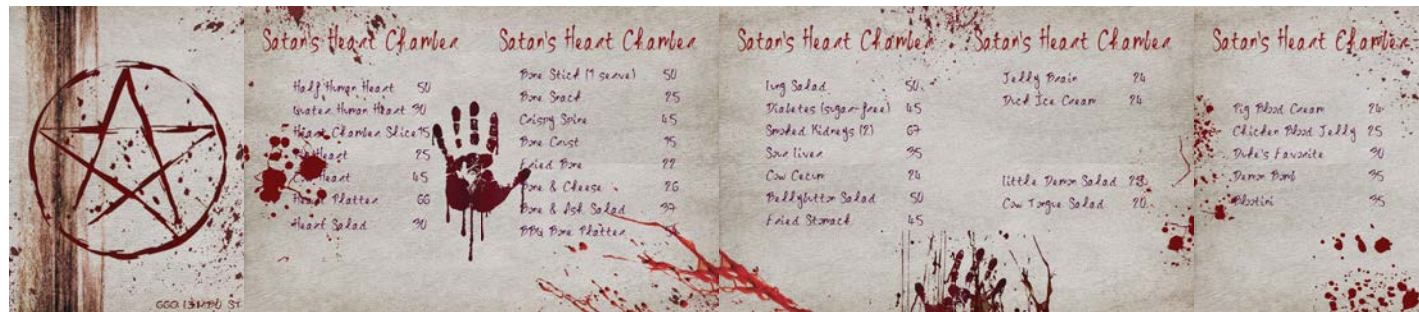 Satan's Heart Chamber
Half Human Heart 50
Quater Human Heart 30
Heart Chamber Slice 15
Heart 25
Heart 45
Heart Platter 66
Heart Salad 30
Satan's Heart Chamber
Bone Stick (1 serve) 50
Bone Snack 25
Crispy Spine 45
Bone Crust 15
Fried Bone 22
Bone & Cheese 26
Bone & Ash Salad 37
BBQ Bone Platter
Satan's Heart Chamber
Lung Salad 50
Diabetes (sugar-free) 45
Smoked Kidneys (2) 67
Sour liver 35
Cow Cecum 24
Bellybutton Salad 50
Fried Stomach 45
Satan's Heart Chamber
Jelly Brain 24
Duck Ice Cream 24
little Demon Salad
Cow Tongue Salad 20
Satan's Heart Chamber
Pig Blood Cream 24
Chicken Blood Jelly 25
Dude's Favorite 30
Demon Bomb 35
Blootini 35